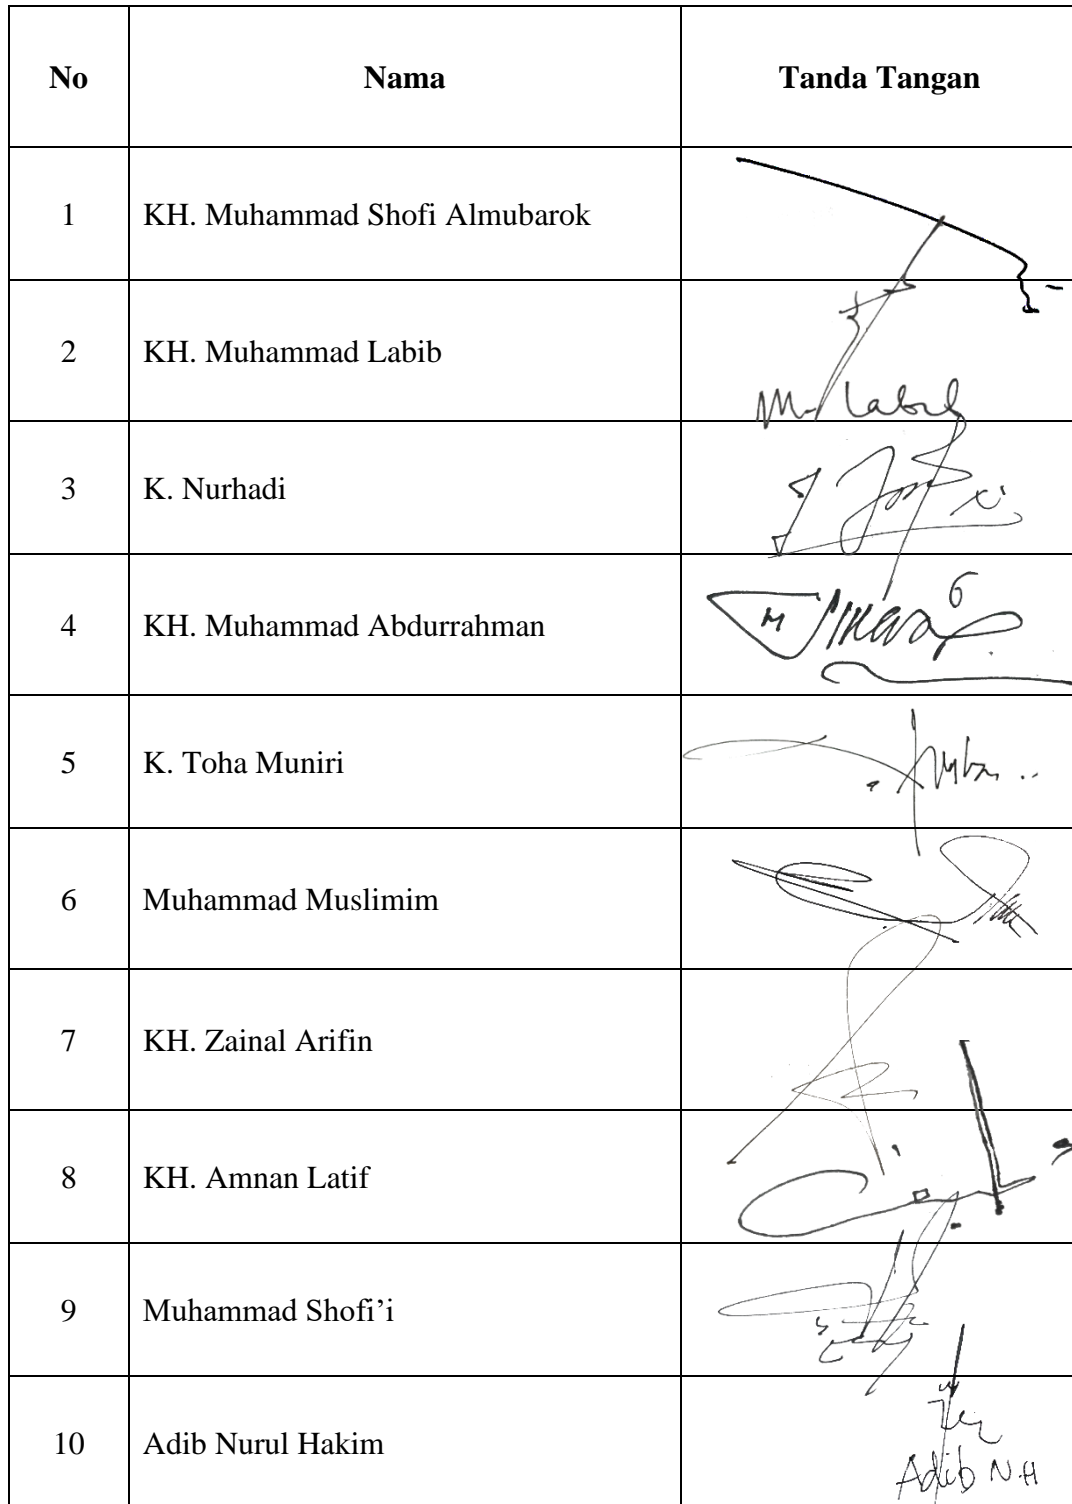 No Nama Tanda Tangan
1 KH. Muhammad Shofi Almubarok
2 KH. Muhammad Labib
M. Labib
3 K. Nurhadi
4 KH. Muhammad Abdurrahman
5 K. Toha Muniri
6 Muhammad Muslimim
7 KH. Zainal Arifin
8 KH. Amnan Latif
9 Muhammad Shofi’i
10 Adib Nurul Hakim
Adib N.H